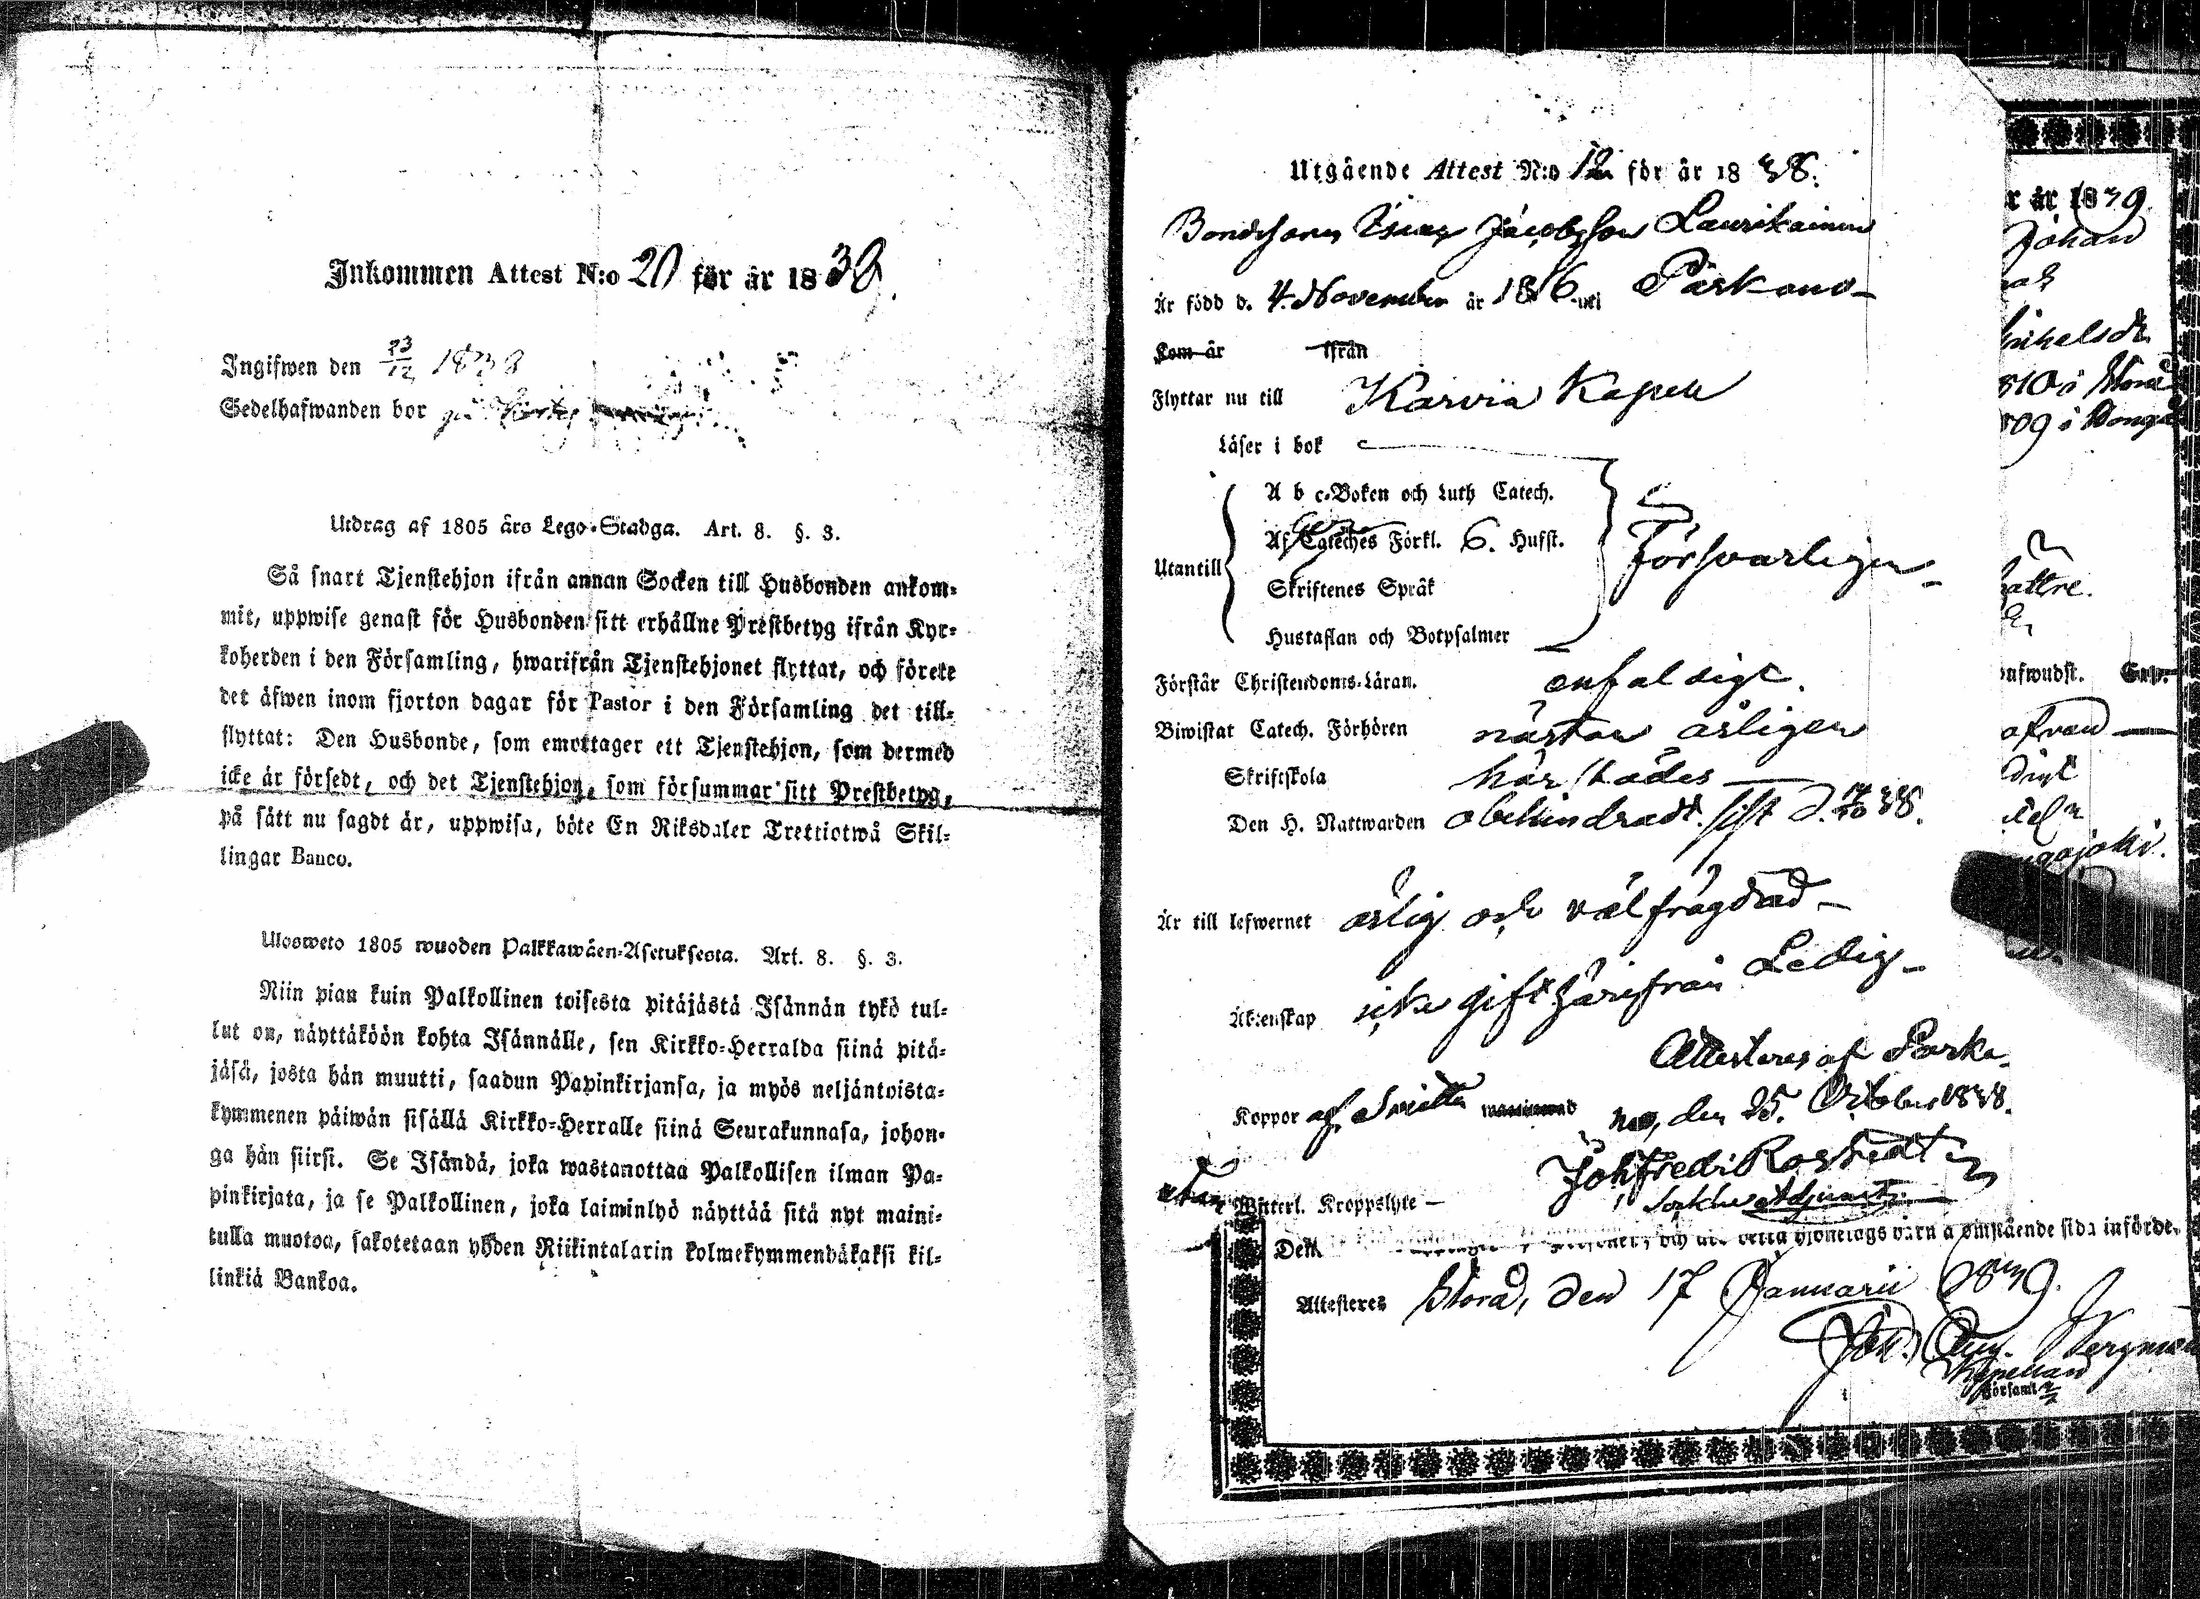 Inkommen Attest N:o 20 för år 1838.
Ingifwen den 23/12 1838
Sedelhafwanden bor på
Utdrag af 1805 års Lego-Stadga. Art. 8. §. 3.
Så snart Tjenstehjon ifrån annan Socken till Husbonden ankom-
mit, uppwise genast för Husbonden sitt erhållne Prestbetyg ifrån Kyr-
koherden i den Församling, hwarifrån Tjenstehjonet flyttat, och förete
det äfwen inom fjorton dagar för Pastor i den Församling det till-
flyttat: Den Husbonde, som emottager ett Tjenstehjon, som dermed
icke är försedt, och det Tjenstehjon, som försummar sitt Prestbetyg,
på sätt nu sagdt är, uppwisa, böte En Riksdaler Trettiotwå Skil-
lingar Banco.
Ulosweto 1805 wuoden Palkkawäen-Asetuksesta. Art. 8. §. 3.
Niin pian kuin Palkollinen toisesta pitäjästä Isännän tykö tul-
lut on, näyttäköön kohta Isännälle, sen Kirkko-Herralda siinä pitä-
jäsä, josta hän muutti, saadun Papinkirjansa, ja myös neljäntoista-
kymmenen päiwän sisällä Kirkko-Herralle siinä Seurakunnasa, johon-
ga hän siirsi. Se Isändä, joka wastanottaa Palkollisen ilman Pa-
pinkirjata, ja se Palkollinen, joka laiminlyö näyttää sitä nyt maini-
tulla muotoa, sakotetaan yhden Riikintalarin kolmekymmendäkaksi kil-
linkiä Bankoa.
Utgående Attest N:o 12 för år 1838.
Bondesonen Isaac Jacobsson Laurikainen
Är född d. 4 November år 1816 uti Parkano
Kom år ifrån
Flyttar nu till Karvia Kapell
Läser i bok
A b c-Boken och Luth Catech.
Af Cateches Förkl. 6. Hufst.
Utantill
Försvarligen
Skriftenes Språk
Hustaflan och Botpsalmer
Förstår Christendoms-Läran. enfaldigt.
Biwistat Catech. Förhören nästan årligen
Skriftskola härstädes
Den H. Nattwarden obehindradt. sist d. 38.
Är till lefwernet ärlig och väl frägdad
Äktenskap icke gift härifrån Ledig
Attesteras af Parka-
no, den 25. October 1838.
Koppor af Smitta
Joh Fredr Rostedt
Adjunct
utan Wuterl. Kroppslyte
r år 1839.
Johan
810 i Storå
809 i
attre.
Storå
Attesteres Storå, den 17 Januarii 1839.
Joh. Aug. Bergman
Kapellan
Församl